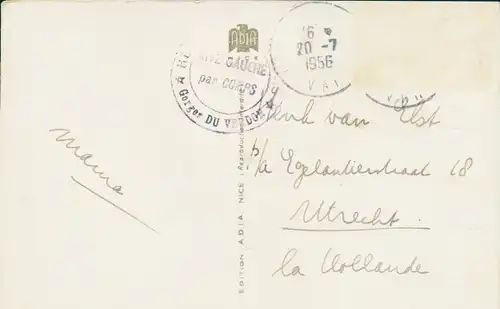 ADIA
RIVE GAUCHE
par COMPS
Gorges DU VERDON
16
20 -7
1956
VAR
Henk van Elst
p/a Egelantierstraat 18
Utrecht.
la Hollande
Mama
EDITION ADIA. NICE